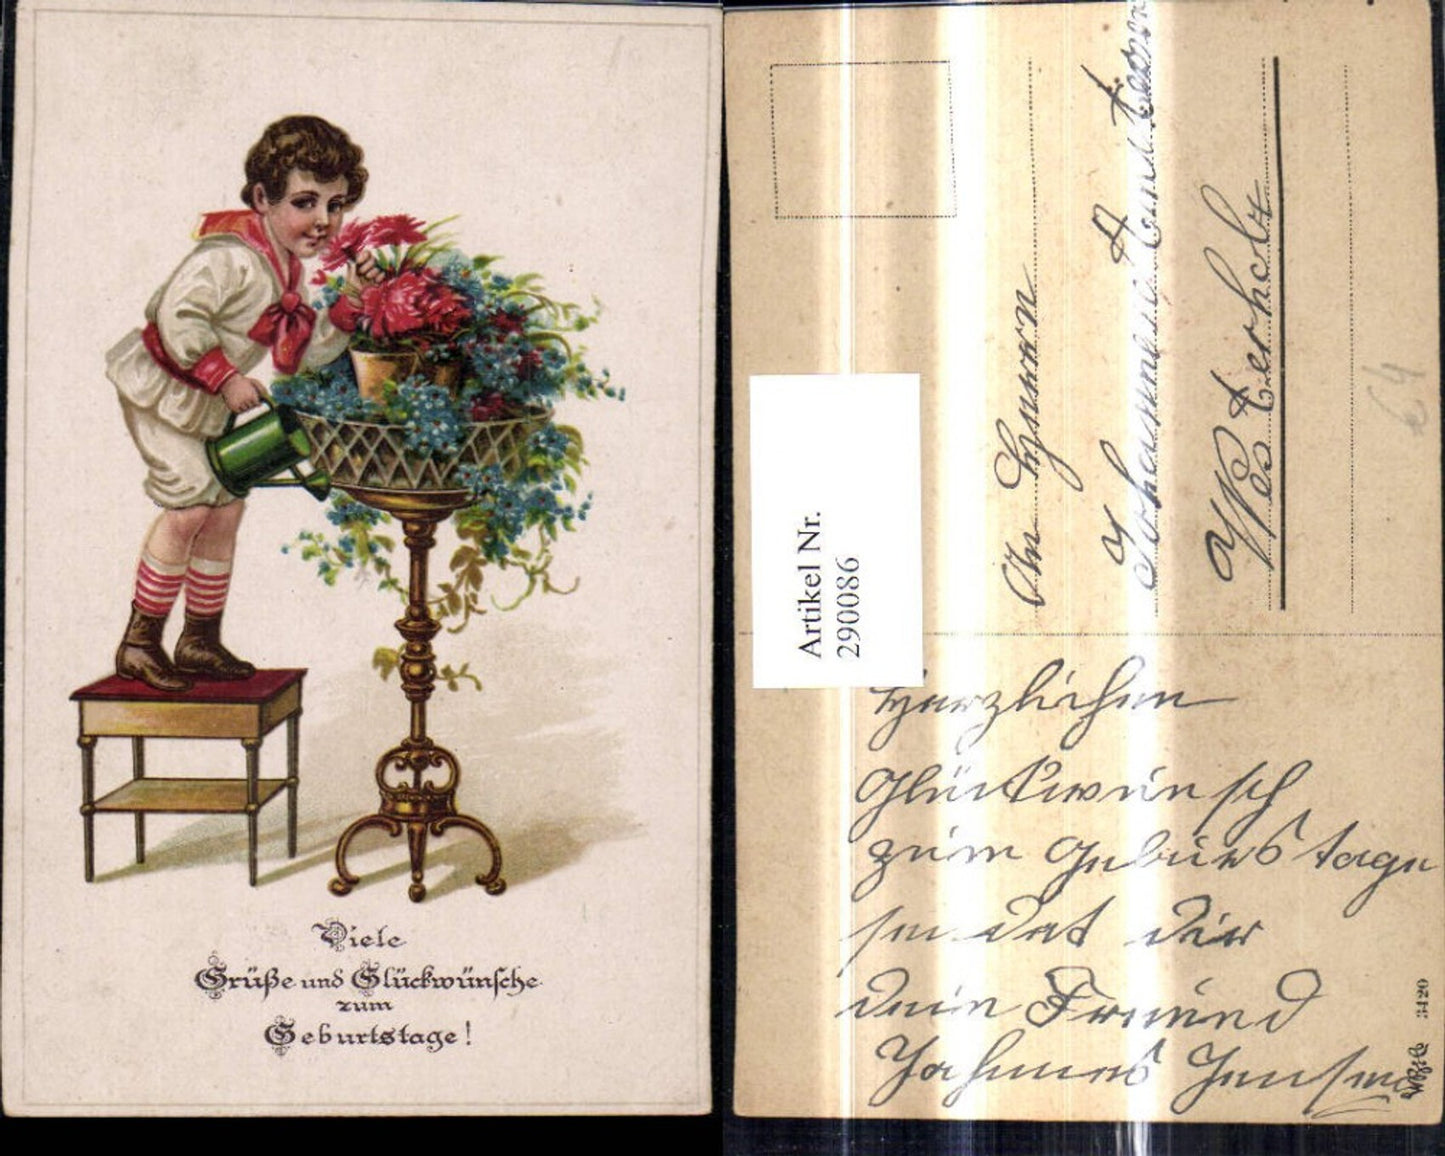 Viele
Grüße und Glückwünsche
zum
Geburtstage!
Artikel Nr.
290086
An Herrn
Johannes
Westerholz
64
Herzlichen
Glückwunsch
zum Geburtstage
sendet dir
dein Freund
Johannes Jensen
3420